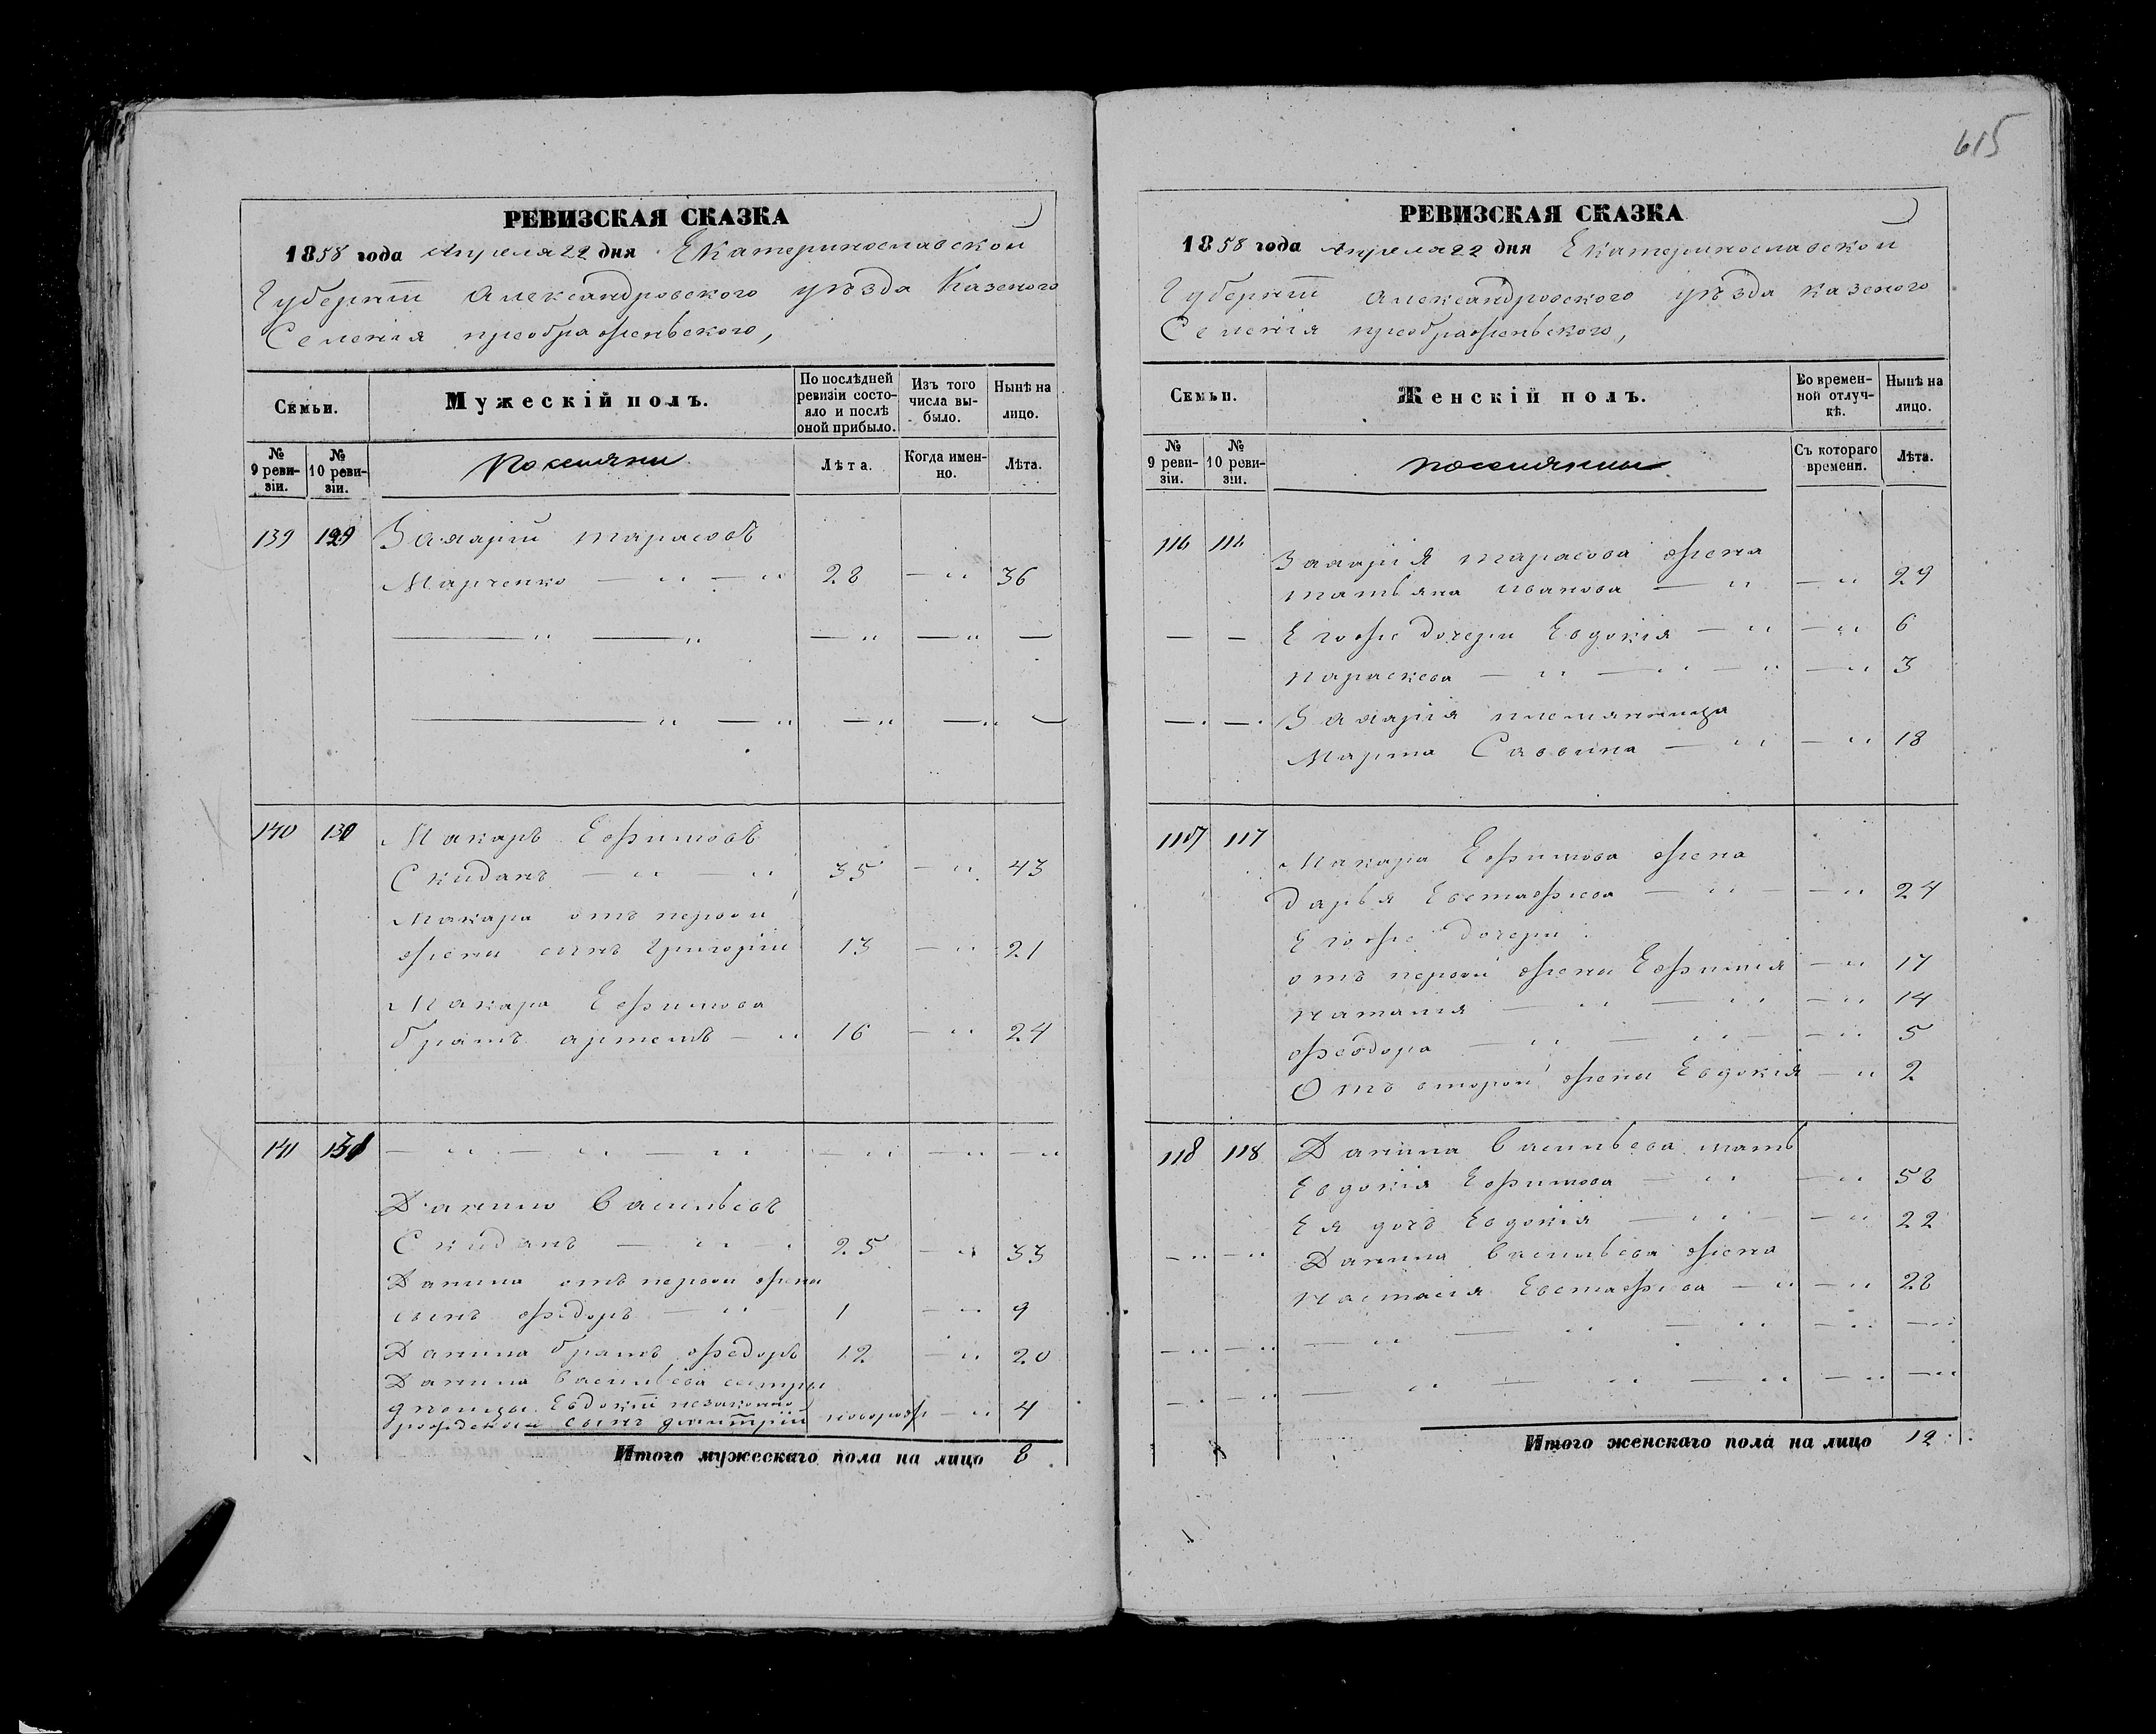 615
РЕВИЗСКАЯ СКАЗКА
1858 года Апреля 22 дня Екатеринославской
Губернiи Александровского уѣзда Казеного
Селенiя преображеньского,
Семьи.
Мужескiй полъ.
По послѣдней ревизiи состояло и послѣ оной прибыло.
Изъ того числа выбыло.
Нынѣ на лицо.
№ 9 ревизiи.
№ 10 ревизiи.
Поселяни
Лѣта.
Когда именно.
Лѣта.
139 129 Захарiй тарасовъ
Марченко — " — " 28 — " 36
— " — " — " — " —
— " — " — " — " —
140 130 Макаръ Ефимовъ
Скиданъ — " — " 35 — " 43
Макара отъ первой
жены сынъ Григорiй 13 — " 21
Макара Ефимова
братъ артемъ — " 16 — " 24
141 131 — " — " — " — " — " — "
Данило Васильевъ
Скиданъ — " — 25 — " 33
Данила отъ первой жены
сынъ федоръ — " 1 — " 9
Данила братъ федоръ 12 — " 20
Данила Васильева сестры
Евдокiи незаконно
рожденой сынъ дмитрiй новорож — " 4
Итого мужескаго пола на лицо 8
РЕВИЗСКАЯ СКАЗКА
1858 года Апреля 22 дня Екатеринославской
Губернiи Александровского уѣзда казеного
Селенiя преображеньского,
Семьи.
Женскiй полъ.
Во временной отлучкѣ.
Нынѣ на лицо.
№ 9 ревизiи.
№ 10 ревизiи.
поселянки
Съ котораго времени.
Лѣта.
116 116 Захарiя тарасова жена
татьяна иванова — " — " 29
— — Егоже дочери Евдокiя — " — " 6
параскева — " — " — " — " 3
— — Захарiя племянница
Марфа Саввина — " — " 18
117 117 Макара Ефимова жена
дарья Евстафиева — " — — " 24
Егоже дочери
отъ первой жены Ефимiя — " 17
наталiя — " — " — " 14
феодора — " — " — — " 5
Отъ второй жены Евдокiя — " 2
118 118 Данила Васильева мать
Евдокiя Ефимова — " — " 58
Ея дочь Евдокiя — " — — " 22
— " — " Данила Васильева жена
настасiя Евстафиева — " — " 28
— " — " — " — " — " — " — "
— " — " — " — " — " — " — "
Итого женскаго пола на лицо 12